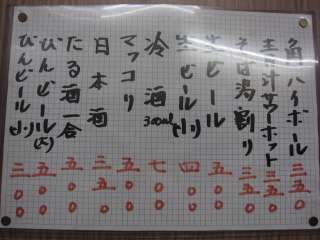 角ハイボール 三五〇
青汁サワーホット 三五〇
そば湯割り 三五〇
生ビール 五〇〇
生ビール(小) 四〇〇
冷酒300ml 七〇〇
マッコリ 五〇〇
日本酒 三五〇
たる酒一合 五〇〇
びんビール(大) 五〇〇
びんビール(小) 三〇〇